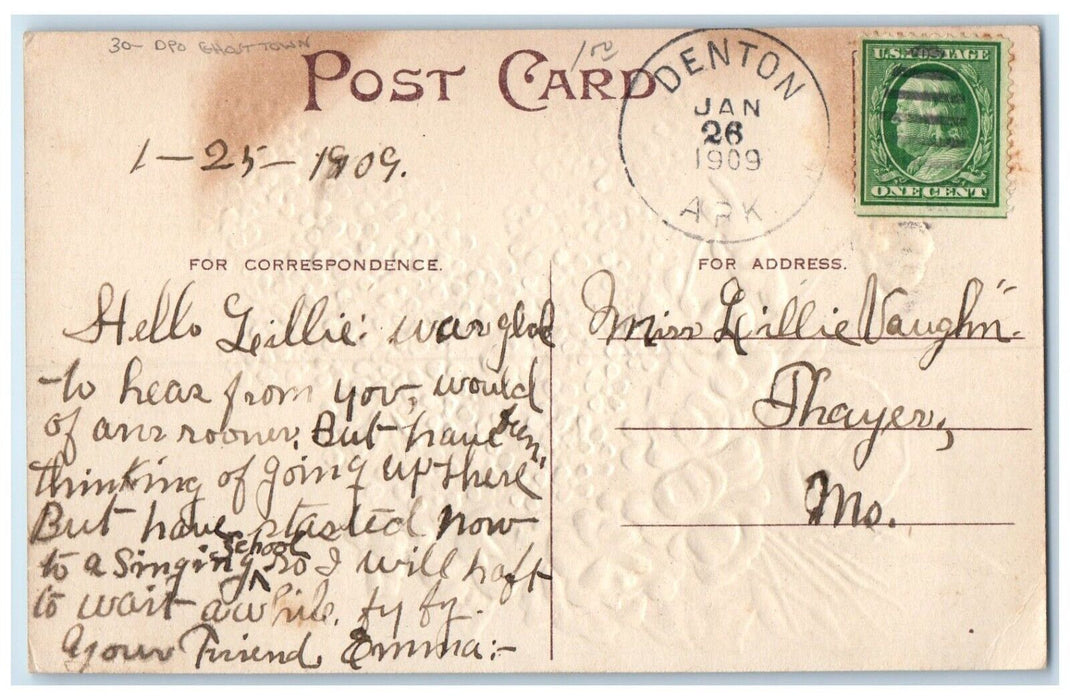 30- DPO GHOST TOWN
1.00
POST CARD
DENTON
JAN
26
1909
ARK.
U.S. POSTAGE
ONE CENT
1-25-1909.
FOR CORRESPONDENCE.
FOR ADDRESS.
Hello Lillie: was glad
to hear from you, would
of ans sooner. But have been
thinking of going up there
But have started now
to a singing school so I will haft
to wait awhile. by by.
your Friend Emma:-
Miss Lillie Vaughn.
Thayer,
Mo.